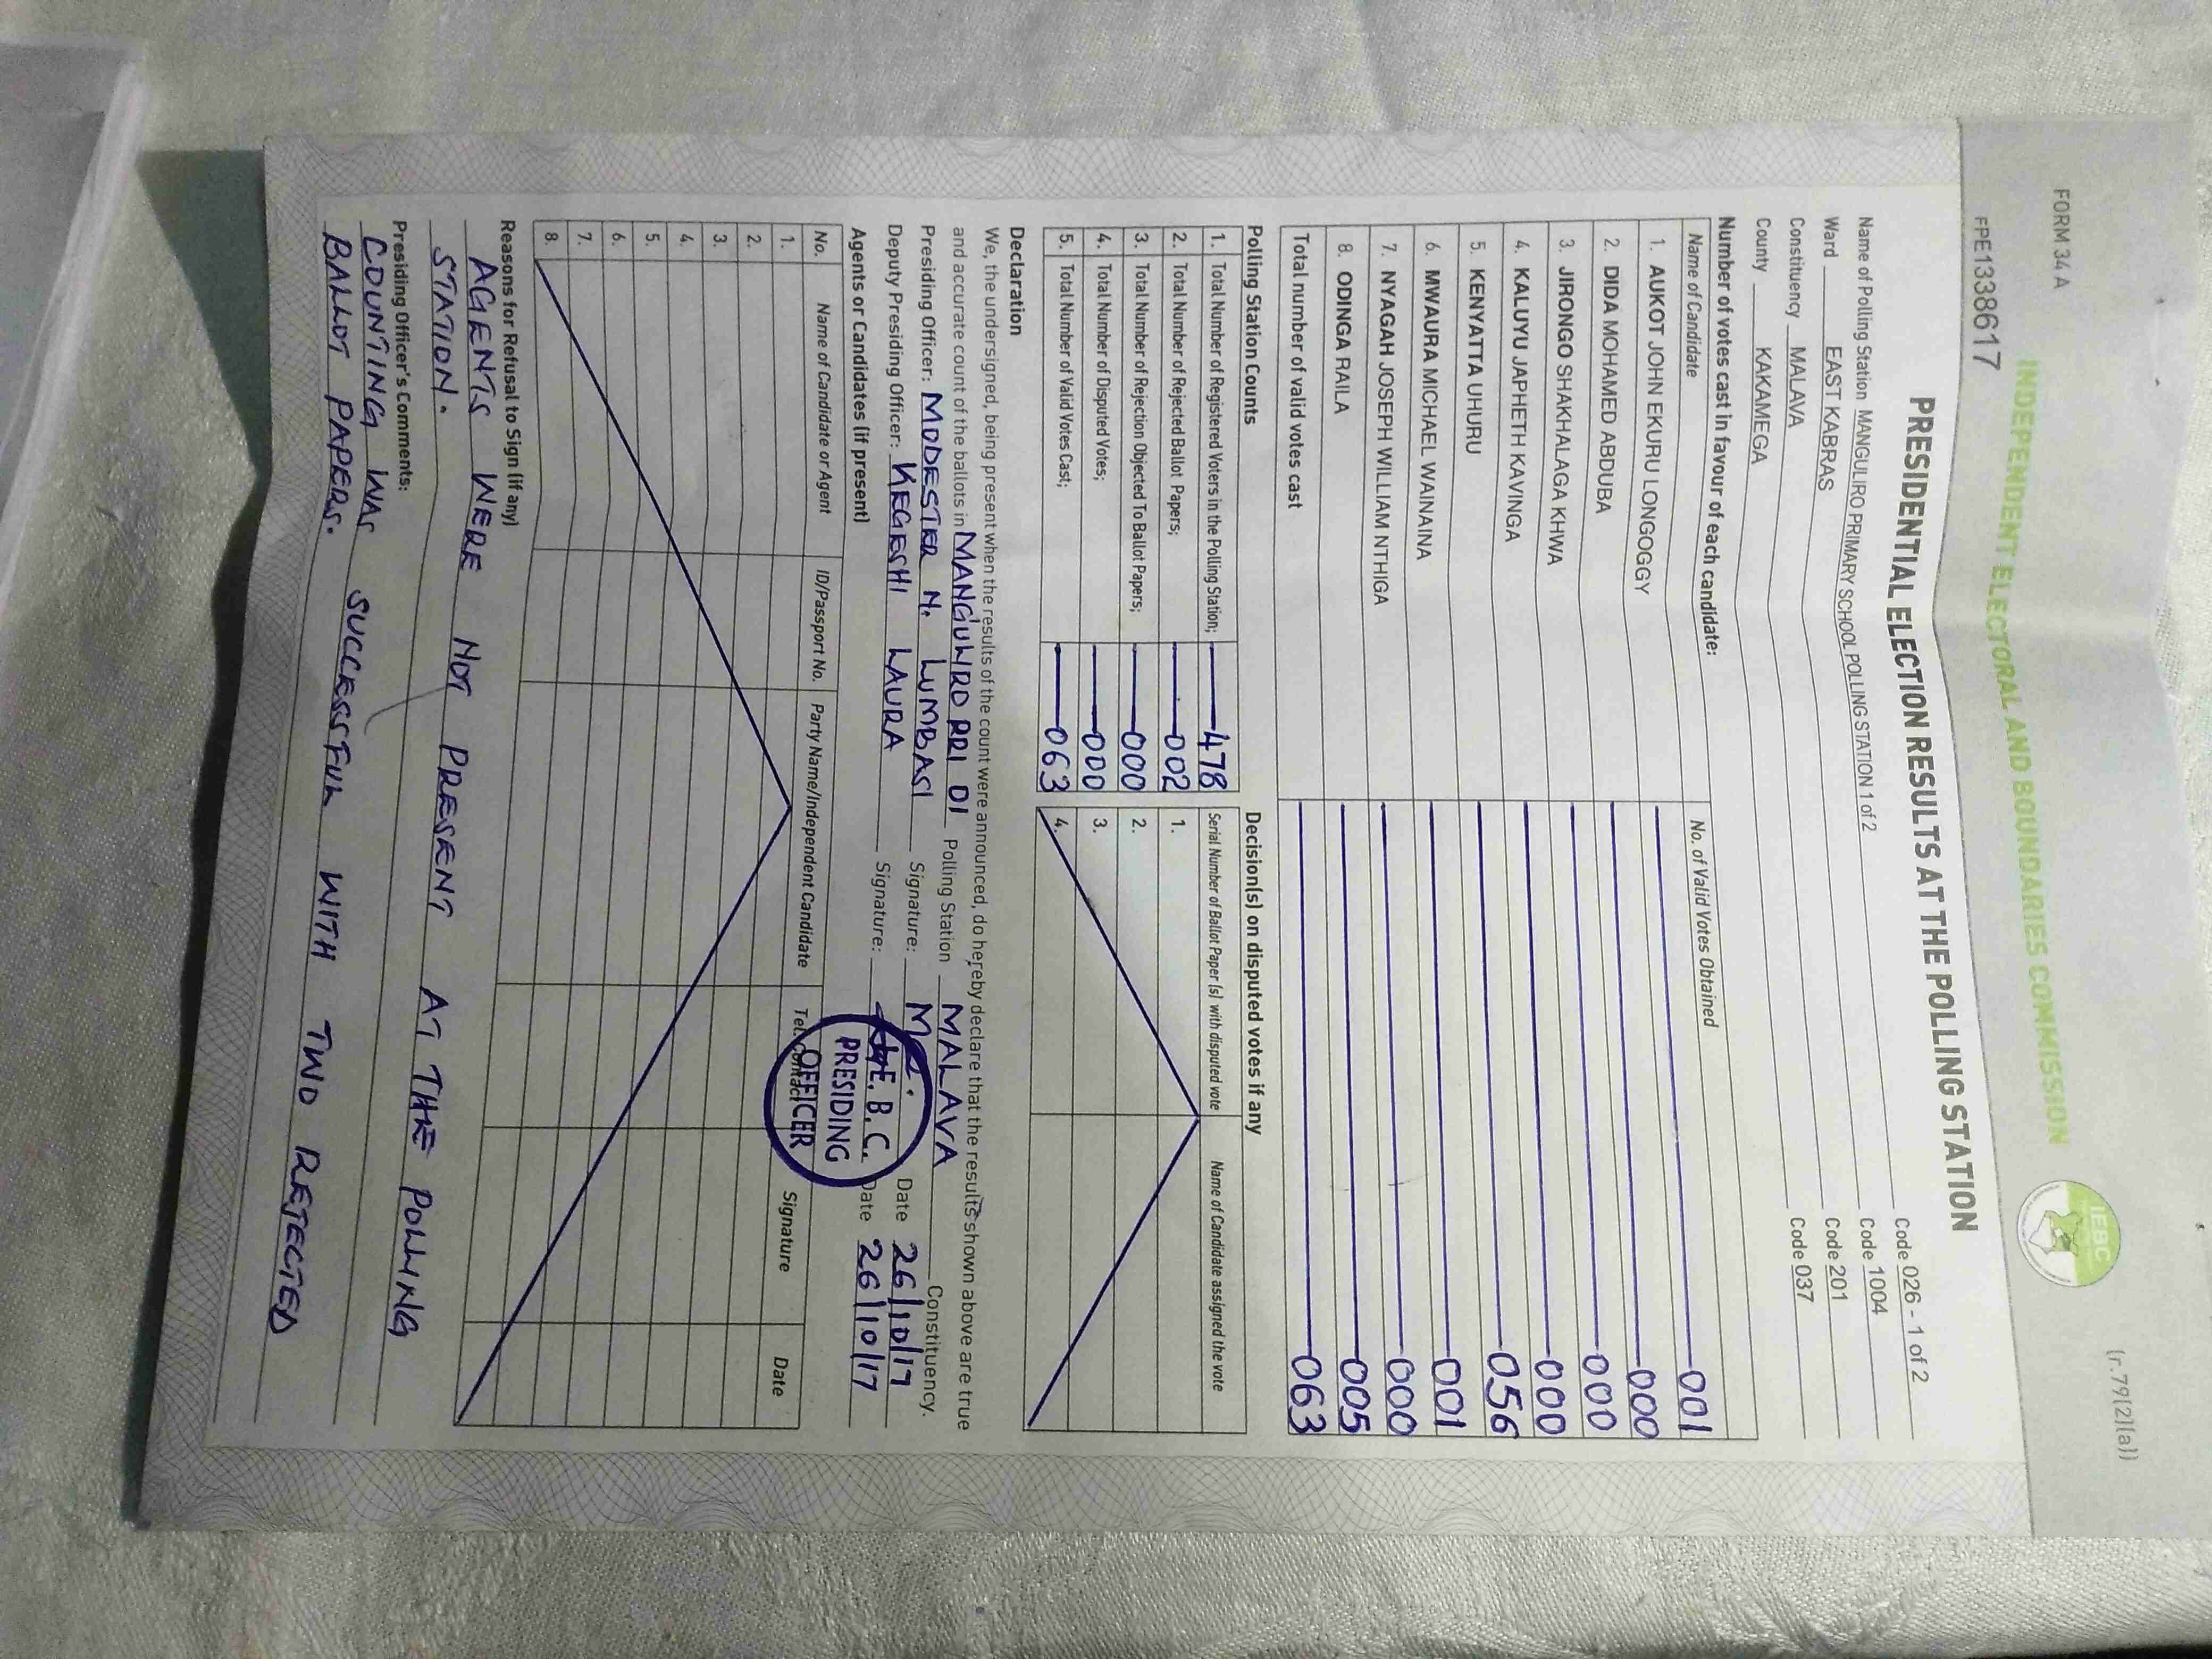 FORM 34 A
(r.79(2)(a))
INDEPENDENT ELECTORAL AND BOUNDARIES COMMISSION
IEBC
EPE1338617
PRESIDENTIAL ELECTION RESULTS AT THE POLLING STATION
Name of Polling Station MANGULIRO PRIMARY SCHOOL POLLING STATION 1 of 2 Code 026 - 1 of 2
Ward EAST KABRAS Code 1004
Constituency MALAVA Code 201
County KAKAMEGA Code 037
Number of votes cast in favour of each candidate:
Name of Candidate No. of Valid Votes Obtained
1. AUKOT JOHN EKURU LONGOGGY 001
2. DIDA MOHAMED ABDUBA 000
3. JIRONGO SHAKHALAGA KHWA 000
4. KALUYU JAPHETH KAVINGA 000
5. KENYATTA UHURU 056
6. MWAURA MICHAEL WAINAINA 001
7. NYAGAH JOSEPH WILLIAM NTHIGA 000
8. ODINGA RAILA 005
Total number of valid votes cast 063
Polling Station Counts
1. Total Number of Registered Voters in the Polling Station; 478
2. Total Number of Rejected Ballot Papers; 002
3. Total Number of Rejection Objected To Ballot Papers; 000
4. Total Number of Disputed Votes; 000
5. Total Number of Valid Votes Cast; 063
Decision(s) on disputed votes if any
Serial Number of Ballot Paper (s) with disputed vote Name of Candidate assigned the vote
1.
2.
3.
4.
Declaration
We, the undersigned, being present when the results of the count were announced, do hereby declare that the results shown above are true
and accurate count of the ballots in MANGULIRO PRI 01 Polling Station MALAVA Constituency.
Presiding Officer: MODESTER N. LUMBASI Signature: Date 26/10/17
Deputy Presiding Officer: KEGESHI LAURA Signature: Date 26/10/17
I.E.B.C.
PRESIDING
OFFICER
Agents or Candidates (if present)
No. Name of Candidate or Agent ID/Passport No. Party Name/Independent Candidate Tel. Contact Signature Date
1.
2.
3.
4.
5.
6.
7.
8.
Reasons for Refusal to Sign (if any)
AGENTS WERE NOT PRESENT AT THE POLLING
STATION.
Presiding Officer's Comments:
COUNTING WAS SUCCESSFUL WITH TWO REJECTED
BALLOT PAPERS.